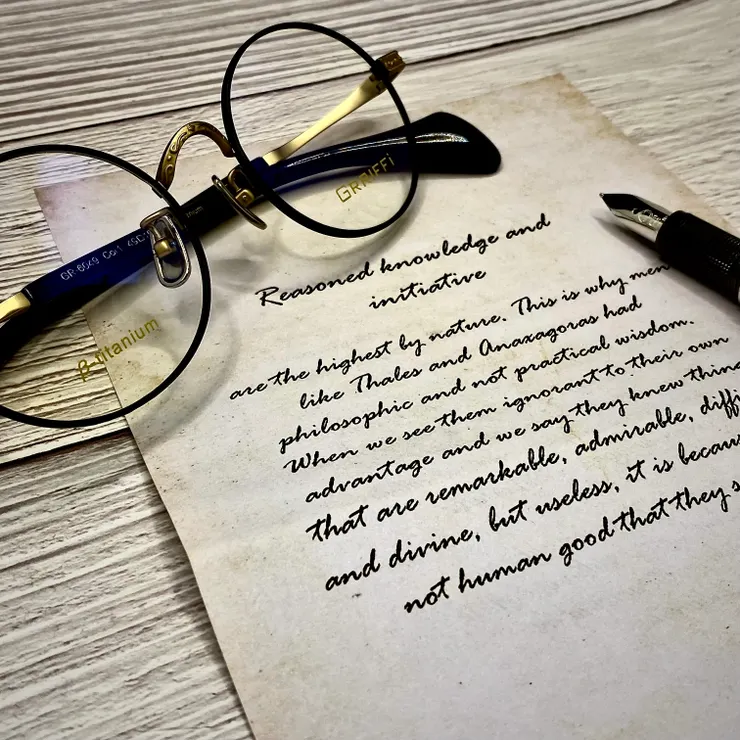 GRAFFi
GR-8049 Col-1
β-titanium
Reasoned knowledge and
initiative
are the highest by nature. This is why men
like Thales and Anaxagoras had
philosophic and not practical wisdom.
When we see them ignorant to their own
advantage and we say they knew thing
that are remarkable, admirable, diffi
and divine, but useless, it is becau
not human good that they s